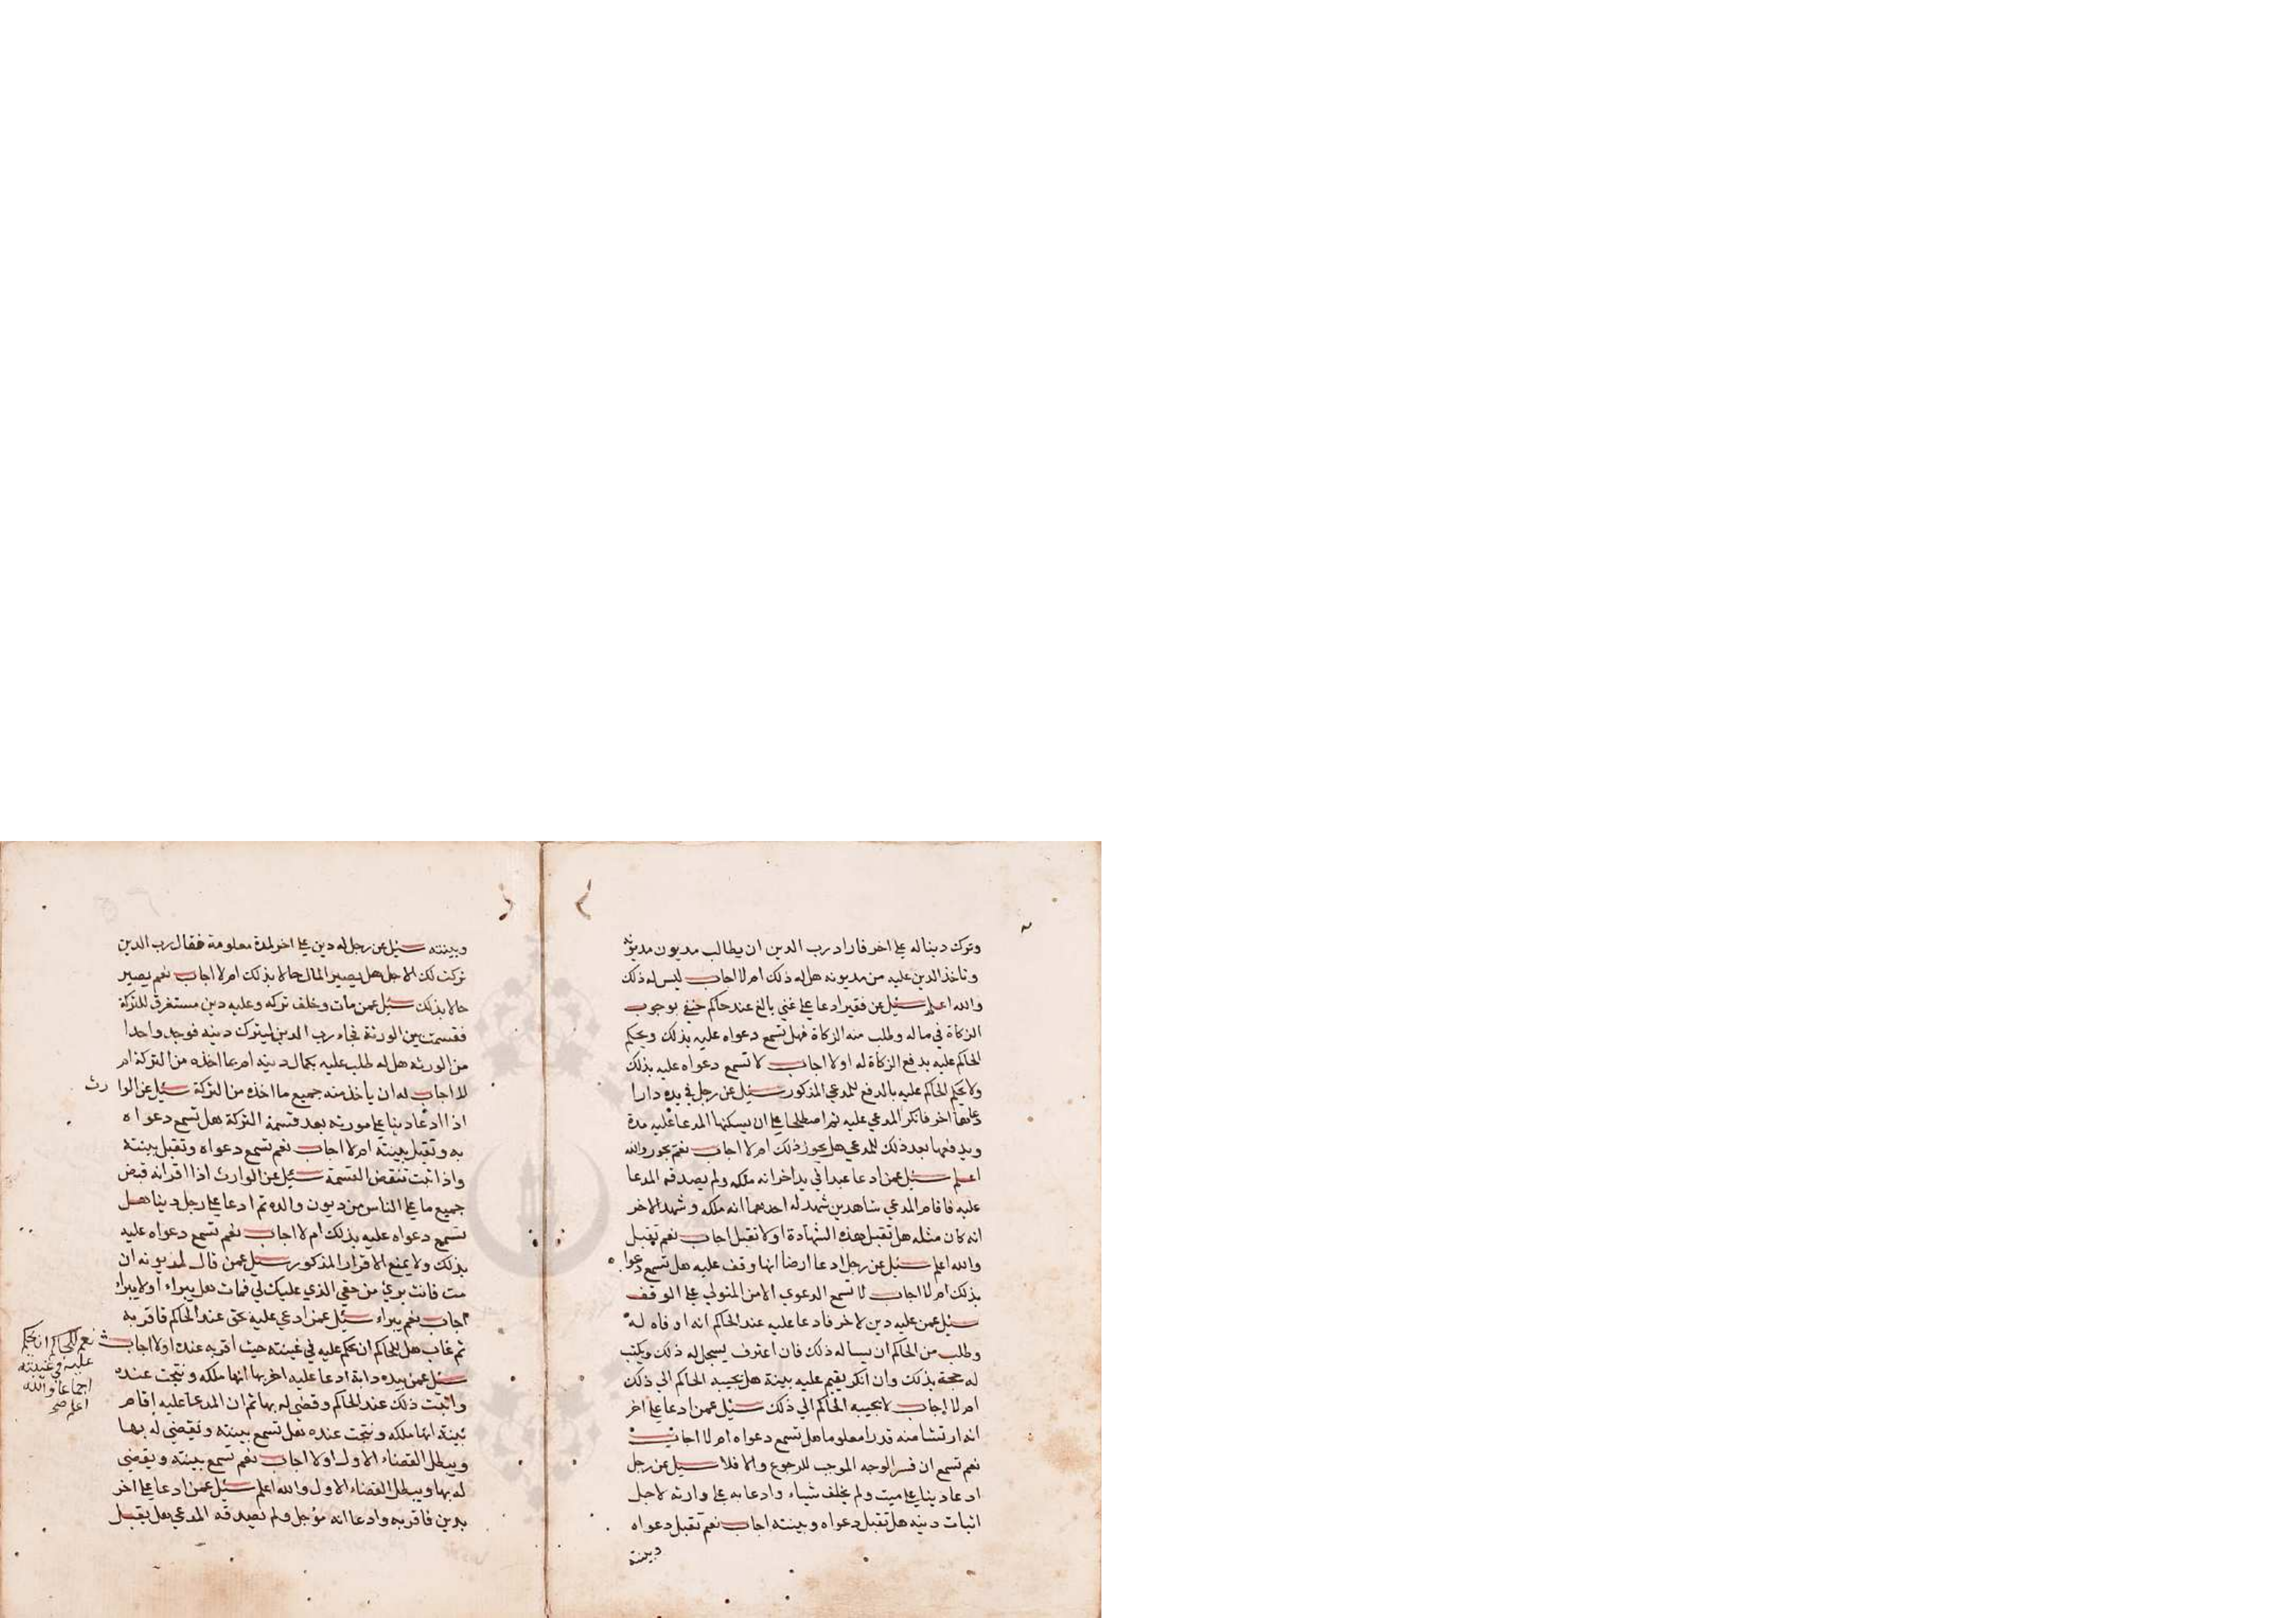 وترك دينا له علي اخر فاراد رب الدين ان يطالب مديون مديونه
وتاخذ الدين عليه من مديونه هل له ذلك ام لا اجاب ليس له ذلك
والله اعلم سئيل عن فقير ادعا علي غني بالغ عند حاكم حنفي بوجوب
الزكاة في ماله وطلب منه الزكاة فهل تسمع دعواه عليه بذلك ويحكم
الحاكم عليه بدفع الزكاة له او لا اجاب لا تسمع دعواه عليه بذلك
ولا يحكم الحاكم عليه بالدفع للمدعي المذكور سئيل عن رجل في يده دارا
دعاها اخر فانكر المدعي عليه ثم اصطلحا علي ان يسكنها المدعا عليه مدة
ويدفعها بعد ذلك للمدعي هل يجوز ذلك ام لا اجاب نعم يجوز والله
اعلم سئيل عمن ادعا عبدا في يد اخر انه ملكه ولم يصدقه المدعا
عليه فاقام المدعي شاهدين شهد له احدهما انه ملكه وشهد الاخر
انه كان ملكه هل تقبل هذه الشهادة او لا تقبل اجاب نعم تقبل
والله اعلم سئيل عن رجل ادعا ارضا انها وقف عليه هل تسمع دعوا
بذلك ام لا اجاب لا تسمع الدعوي الا من المتولي علي الوقف
سئيل عمن عليه دين لاخر فادعا عليه عند الحاكم انه اوفاه له
وطلب من الحاكم ان يساله ذلك فان اعترف يسجل له ذلك ويكتب
له حجة بذلك وان انكر يقيم عليه بينة هل يجيبه الحاكم الي ذلك
ام لا اجاب لا يجيبه الحاكم الي ذلك سئيل عمن ادعا علي اخر
انه ارتشا منه قدرا معلوما هل تسمع دعواه ام لا اجاب
نعم تسمع ان فسر الوجه الموجب للرجوع والا فلا سئيل عن رجل
ادعا دينا علي ميت ولم يخلف شياء وادعا به علي وارثه لاجل
اثبات دينه هل تقبل دعواه وبينته اجاب نعم تقبل دعواه
وبينته
وبينته سئيل عن رجل له دين علي اخر لمدة معلومة فقال رب الدين
تركت لك الاجل هل يصير المال حالا بذلك ام لا اجاب نعم يصير
حالا بذلك سئيل عمن مات وخلف تركه وعليه دين مستغرق للتركة
فقسمت بين الورثة فجاء رب الدين ليترك دينه فوجد واحدا
من الورثه هل له طلب عليه بكمال دينه ام بما اخذه من التركة ام
لا اجاب له ان ياخذ منه جميع ما اخذه من التركة سئيل عن الوا رث
اذا ادعا دينا علي مورثه بعد قسمة التركة هل تسمع دعواه
به وتقبل بينته ام لا اجاب نعم تسمع دعواه وتقبل بينته
واذا ثبت تنقض القسمة سئيل عن الوارث اذا اقر انه قبض
جميع ما علي الناس من ديون والده ثم ادعا علي رجل دينا هل
تسمع دعواه عليه بذلك ام لا اجاب نعم تسمع دعواه عليه
بذلك ولا يمنع الاقرار المذكور سئيل عمن قال لمديونه ان
مت فانت بريء من حقي الذي عليك لي فمات هل يبراء او لا يبراء
اجاب نعم يبراء سئيل عمن ادعي عليه بحق عند الحاكم فاقر به
ثم غاب هل للحاكم ان يحكم عليه في غيبته حيث اقر به عنده او لا اجاب
نعم للحاكم ان يحكم
عليه في غيبته
اجماعا والله
اعلم صح
سئيل عمن بيده دابة ادعا عليه اخر بها انها ملكه ونتجت عنده
واثبت ذلك عند الحاكم وقضي له بها ثم ان المدعا عليه اقام
بينة انها ملكه ونتجت عنده هل تسمع بينته ويقضي له بها
ويبطل القضاء الاول او لا اجاب نعم تسمع بينته ويقضي
له بها ويبطل القضاء الاول والله اعلم سئيل عمن ادعا علي اخر
بدين فاقر به وادعا انه مؤجل ولم يصدقه المدعي هل يقبل